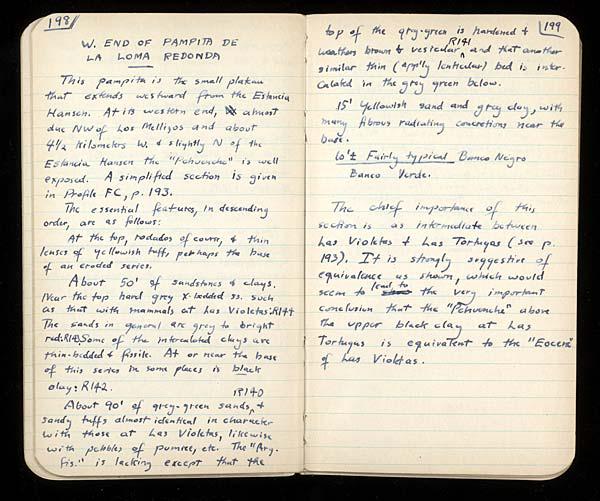 198
W. END OF PAMPITA DE
LA LOMA REDONDA
This pampita is the small plateau
that extends westward from the Estancia
Hansen. At its western end, almost
due NW of Los Mellizos and about
4½ kilometers W. & slightly N of the
Estancia Hansen the "Pehuenche" is well
exposed. A simplified section is given
in Profile FC, p. 193.
The essential features, in descending
order, are as follows:
At the top, rodados of course, & thin
lenses of yellowish tuff, perhaps the base
of an eroded series.
About 50' of sandstones & clays.
Near the top hard grey x-bedded ss. such
as that with mammals at Las Violetas: R144
The sands in general are grey to bright
red: R143. Some of the intercalated clays are
thin-bedded & fissile. At or near the base
of this series in some places is black
clay: R142.
R140
About 90' of grey-green sands, &
sandy tuffs almost identical in character
with those at Las Violetas, likewise
with pebbles of pumice, etc. The "Arg.
Fis." is lacking except that the
199
top of the gry-green is hardened &
R141
weathers brown & vesicular, and that another
similar thin (app'ly lenticular) bed is inter-
calated in the grey green below.
15' Yellowish sand and grey clay, with
many fibrous radiating concretions near the
base.
10'± Fairly typical Banco Negro
Banco Verde.
The chief importance of this
section is as intermediate between
Las Violetas & Las Tortugas (see p.
193). It is strongly suggestive of
equivalence as shown, which would
seem to lead to the very important
conclusion that the "Pehuenche" above
the upper black clay at Las
Tortugas is equivalent to the "Eocene"
of Las Violetas.